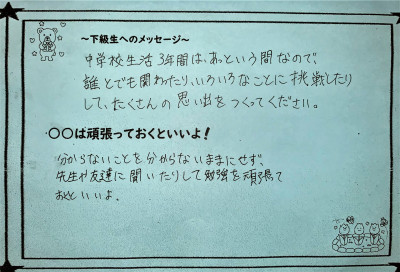 ～下級生へのメッセージ～
中学校生活3年間は、あっという間なので、
誰とでも関わったり、いろいろなことに挑戦したり
して、たくさんの思い出をつくってください。
○○は頑張っておくといいよ！
分からないことを分からないままにせず、
先生や友達に聞いたりして勉強を頑張て
おくといいよ。